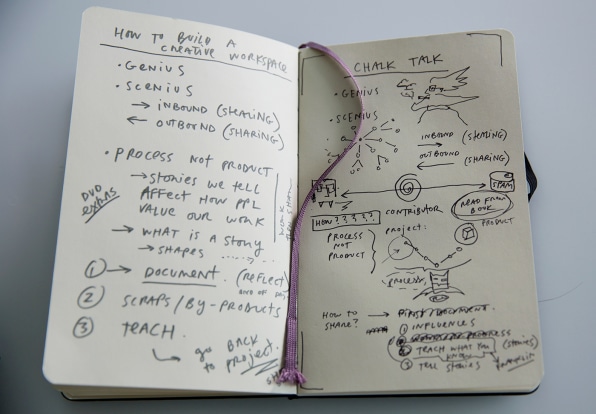 HOW TO BUILD A
CREATIVE WORKSPACE
• GENIUS
• SCENIUS
→ INBOUND (STEALING)
← OUTBOUND (SHARING)
• PROCESS NOT PRODUCT
→ STORIES WE TELL
AFFECT HOW PPL
VALUE OUR WORK
DVD
extras
→ WHAT IS A STORY
→ SHAPES
① → DOCUMENT. (REFLECT
② SCRAPS / BY-PRODUCTS
③ TEACH.
go BACK
to PROJECT.
CHALK TALK
• GENIUS
• SCENIUS
INBOUND (STEALING)
→
OUTBOUND (SHARING)
←
SPAM
HOW?????
CONTRIBUTOR
READ FROM
BOOK
PROCESS
NOT
PRODUCT
PROJECT:
PRODUCT
PROCESS
HOW TO
SHARE?
① INFLUENCES
TEACH WHAT YOU
KNOW
(STORIES)
③ TELL STORIES